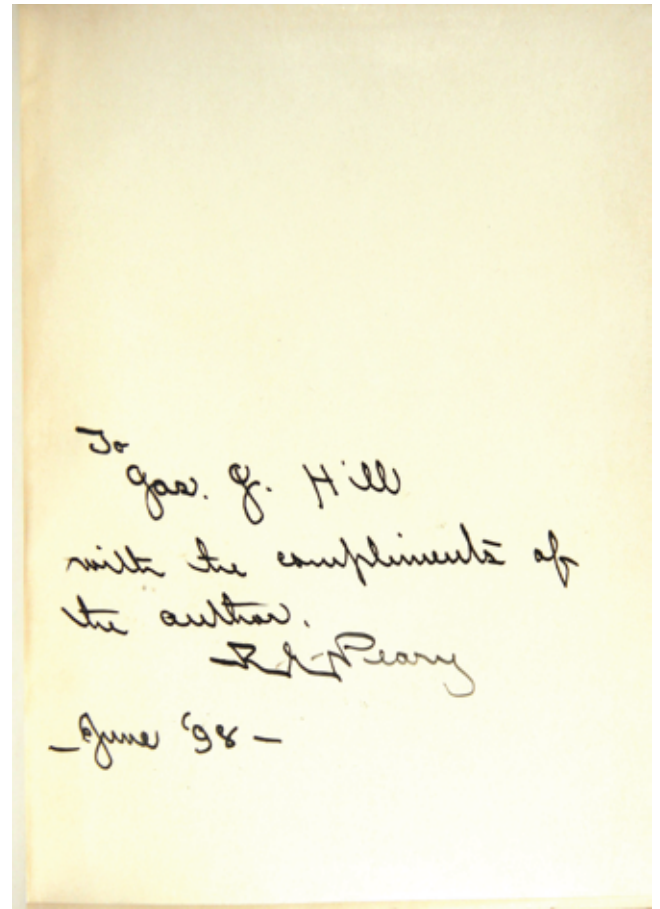 To
Jas. J. Hill
with the compliments of
the author.
R. E. Peary
— June '98 —